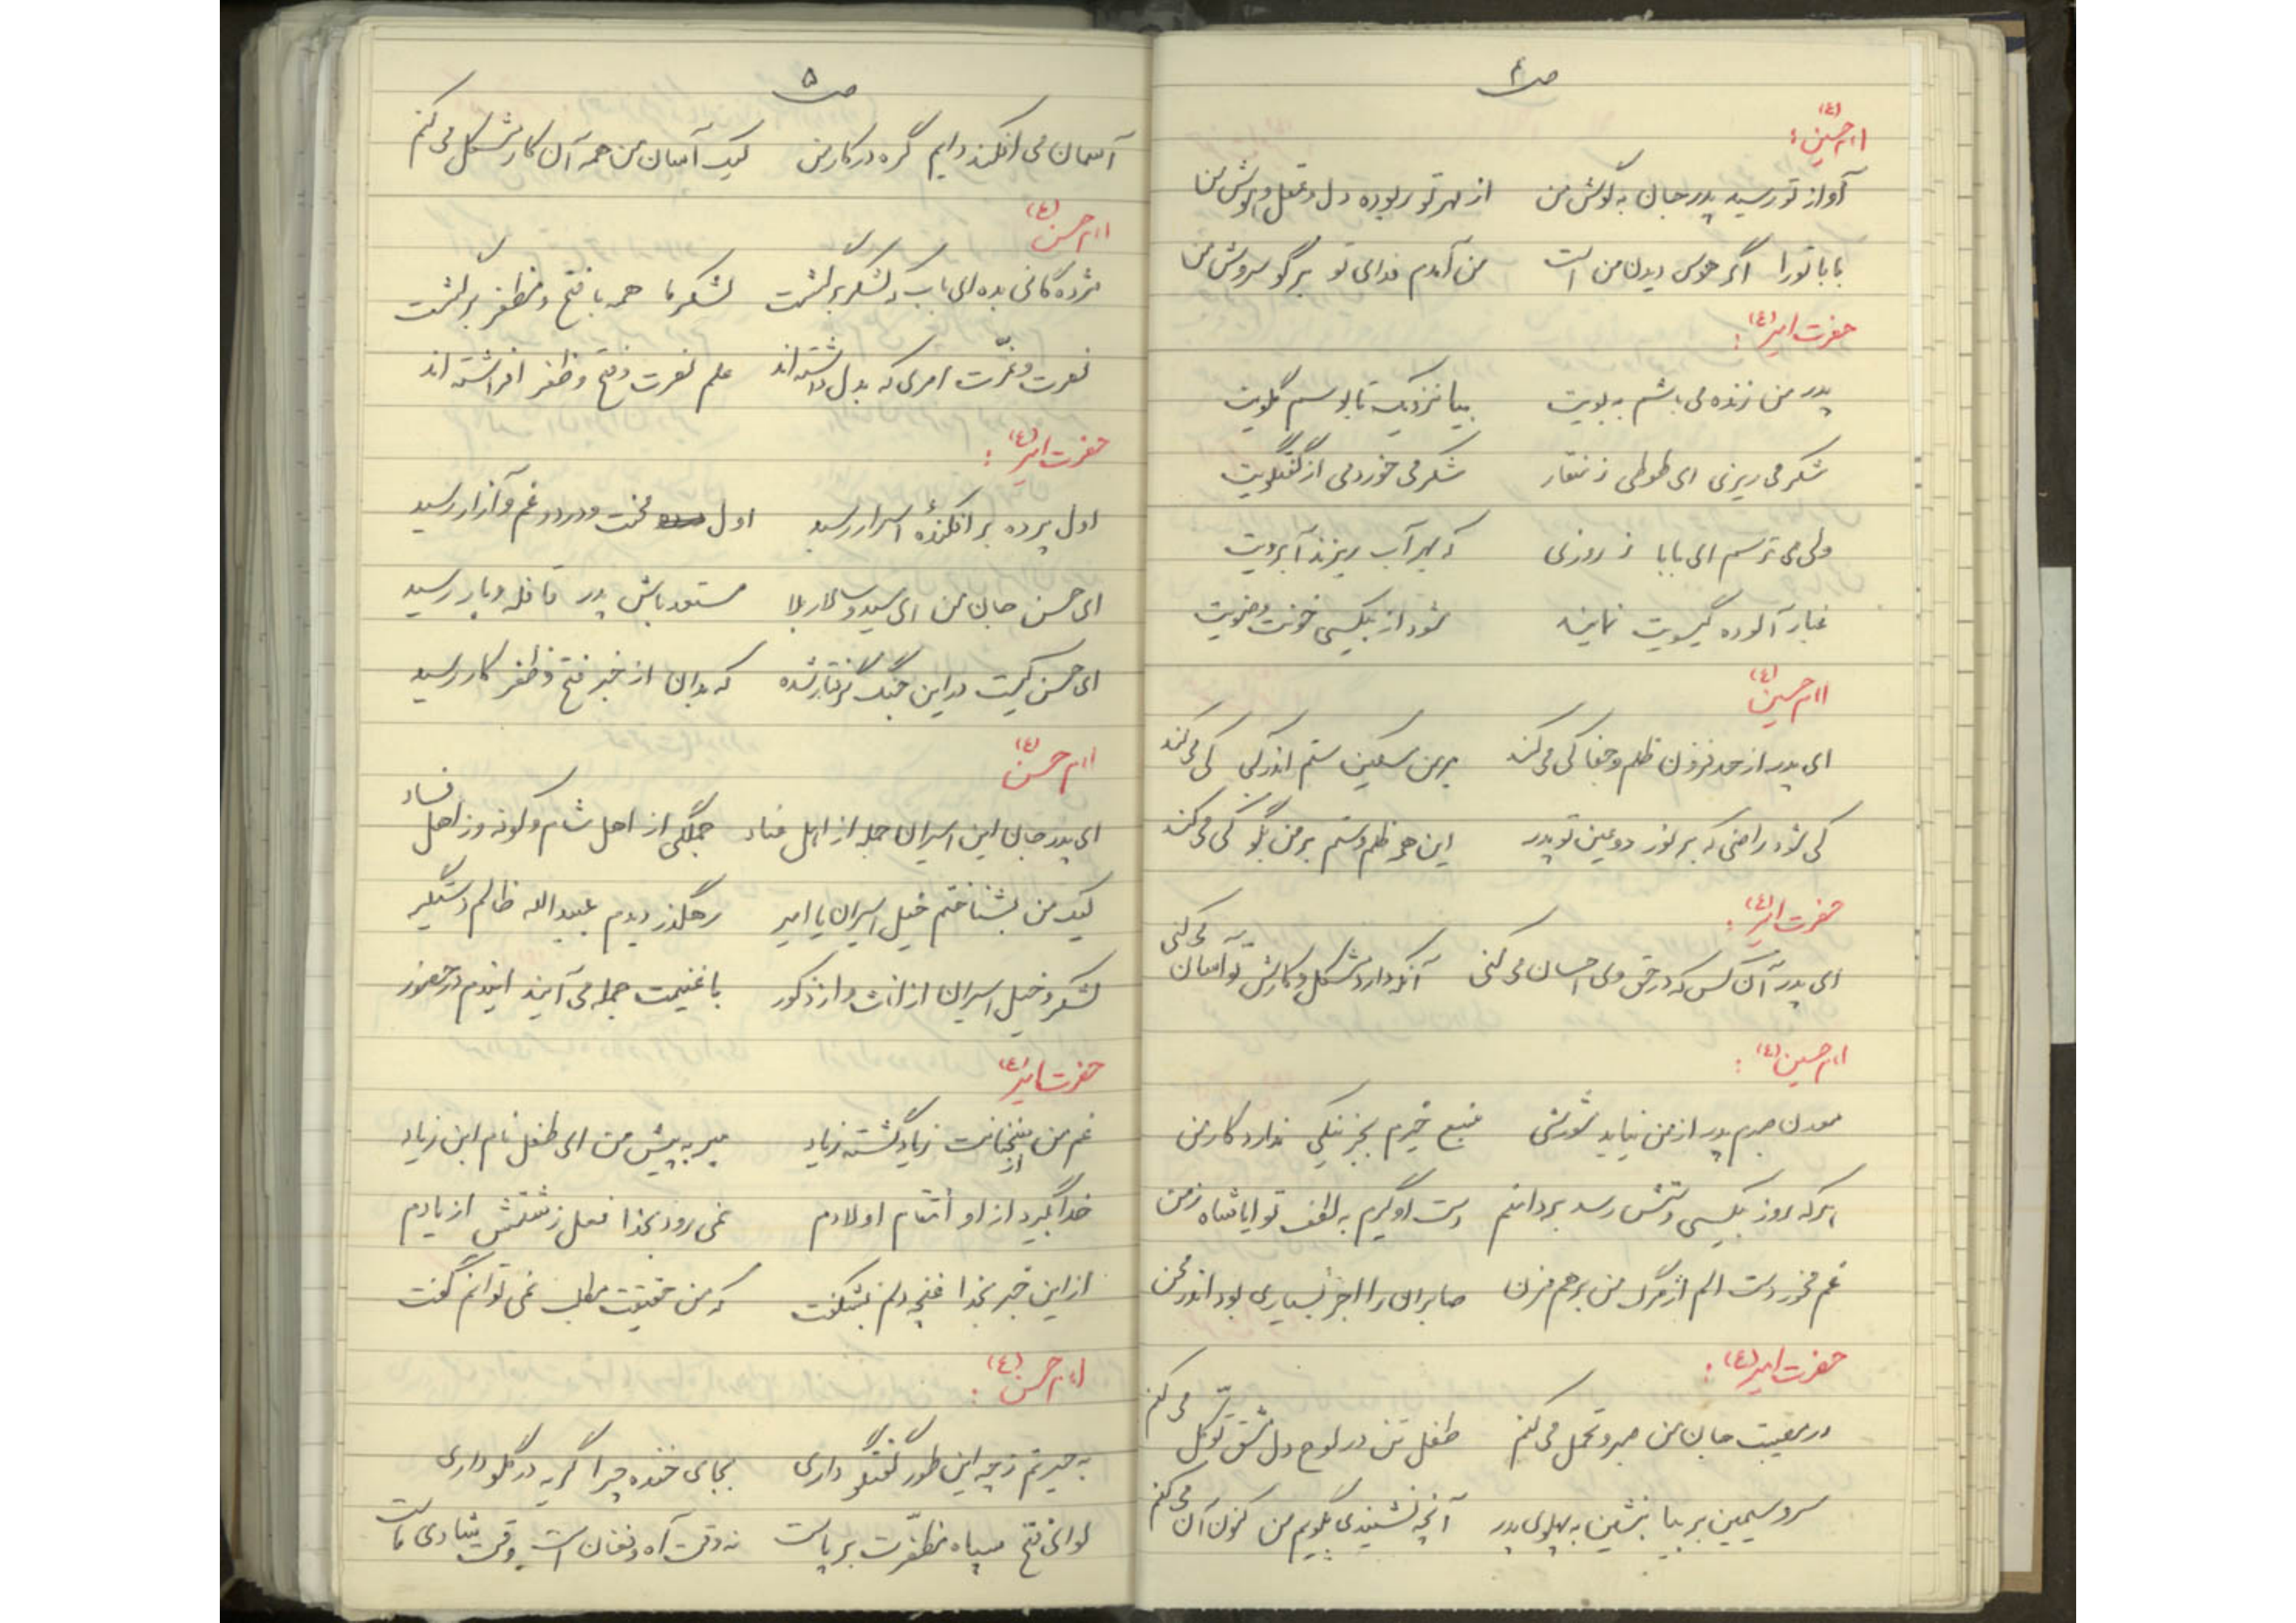 ص ۴
امام حسین (ع):
آواز تو رسید پدر جان به گوش من از مهر تو ربوده دل و عقل و هوش من
بابا تو را اگر هوس دیدن من است من آمدم فدای تو برگو سروش من
حضرت امیر (ع):
پدر من زنده می باشم به بویت بیا نزدیک تا بوسم گلویت
شکر می ریزی ای طوطی ز منقار شکر می خوردمی از گفتگویت
ولی می ترسم ای بابا ز روزی که بهر آب ریزند آبرویت
غبار آلوده گیسویت نمایند شود از بیکسی خونت وضویت
امام حسین (ع)
ای پدر از حد فزون ظلم و جفا کی می کند بر من مسکین ستم اندر کی می کند
کی شود راضی که بر نور دو عین تو پدر این همه ظلم و ستم بر من بگو کی می کند
حضرت امیر (ع):
ای پدر آن کس که در حق وی احسان می کنی آنکه دارد مشکل و کارش تو آسان می کنی
امام حسین (ع):
معدن صبرم پدر از من نیاید شورشی منبع خیرم بجز نیکی ندارد کار من
هر که روز بیکسی دستش رسد بر دامنم دست او گیرم به لطف تو ایا شاه زمن
غم مخور دست الم از مرگ من بر هم مزن صابران را اجر بسیاری بود اندر محن
حضرت امیر (ع):
در مصیبت جان من صبر و تحمل می کنم طفل تن در لوح دل مشق توکل می کنم
سرو سیمین بر بیا بنشین به پهلوی پدر آنچه نشنیدی بگویم من کنون آن می کنم
ص ۵
آسمان می افکند دایم گره در کار من لیک آسان من همه آن کار مشکل می کنم
امام حسن (ع)
مژدگانی بده ای باب که لشکر برگشت لشکر ما همه با فتح و مظفر برگشت
نصرت و عزت امری که بدل داشته اند علم نصرت و فتح و ظفر افراشته اند
حضرت امیر (ع):
اول پرده بر افکندهٔ اسرار رسید اول محنت و درد و غم و آزار رسید
ای حسن جان من ای سید و سالار بلا مستعد باش پدر قافله و بار رسید
ای حسن کیست در این جنگ گرفتار شده که بدان از خبر فتح و ظفر کار رسید
امام حسن (ع)
ای پدر جان این اسیران جمله از اهل عناد جملگی از اهل شام و کوفه وز اهل فساد
لیک من بشناختم خیل اسیران یا امیر رهگذر دیدم عبیدالله ظالم دستگیر
لشکر و خیل اسیران از اناث و از ذکور با غنیمت جمله می آیند ایندم در حضور
حضرت امیر (ع)
غم من از زیاد گشته زیاد مبر به پیش من ای طفل نام ابن زیاد
خدا گیرد از او انتقام اولادم نمی رود بخدا فعل زشتش از یادم
از این خبر بخدا غنچه دلم بشکفت که من حقیقت مطلب نمی توانم گفت
امام حسن (ع):
به حیرتم ز چه این طور گفتگو داری بجای خنده چرا گریه در گلو داری
لوای فتح سپاه مظفرت بر پاست نه وقت آه و فغان است وقت شادی ماست